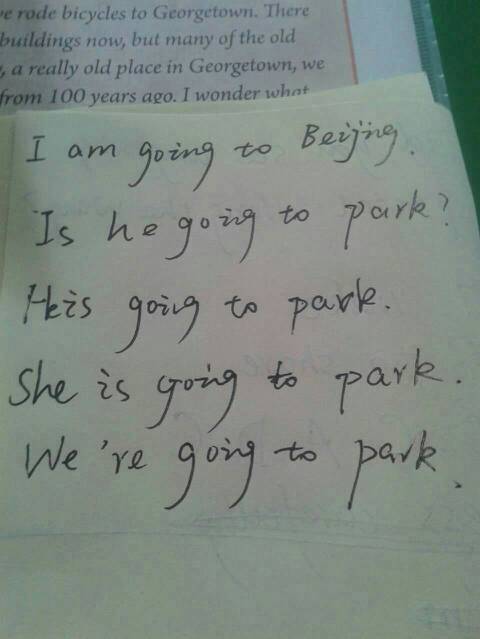 we rode bicycles to Georgetown. There
buildings now, but many of the old
, a really old place in Georgetown, we
from 100 years ago. I wonder what
I am going to Beijing.
Is he going to park?
He is going to park.
She is going to park.
We're going to park.